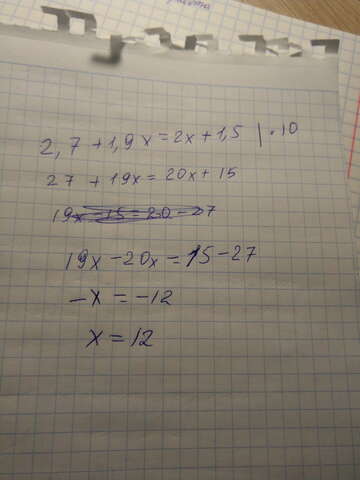 2,7 + 1,9x = 2x + 1,5 | · 10
27 + 19x = 20x + 15
19x - 20x = 15 - 27
-x = -12
x = 12